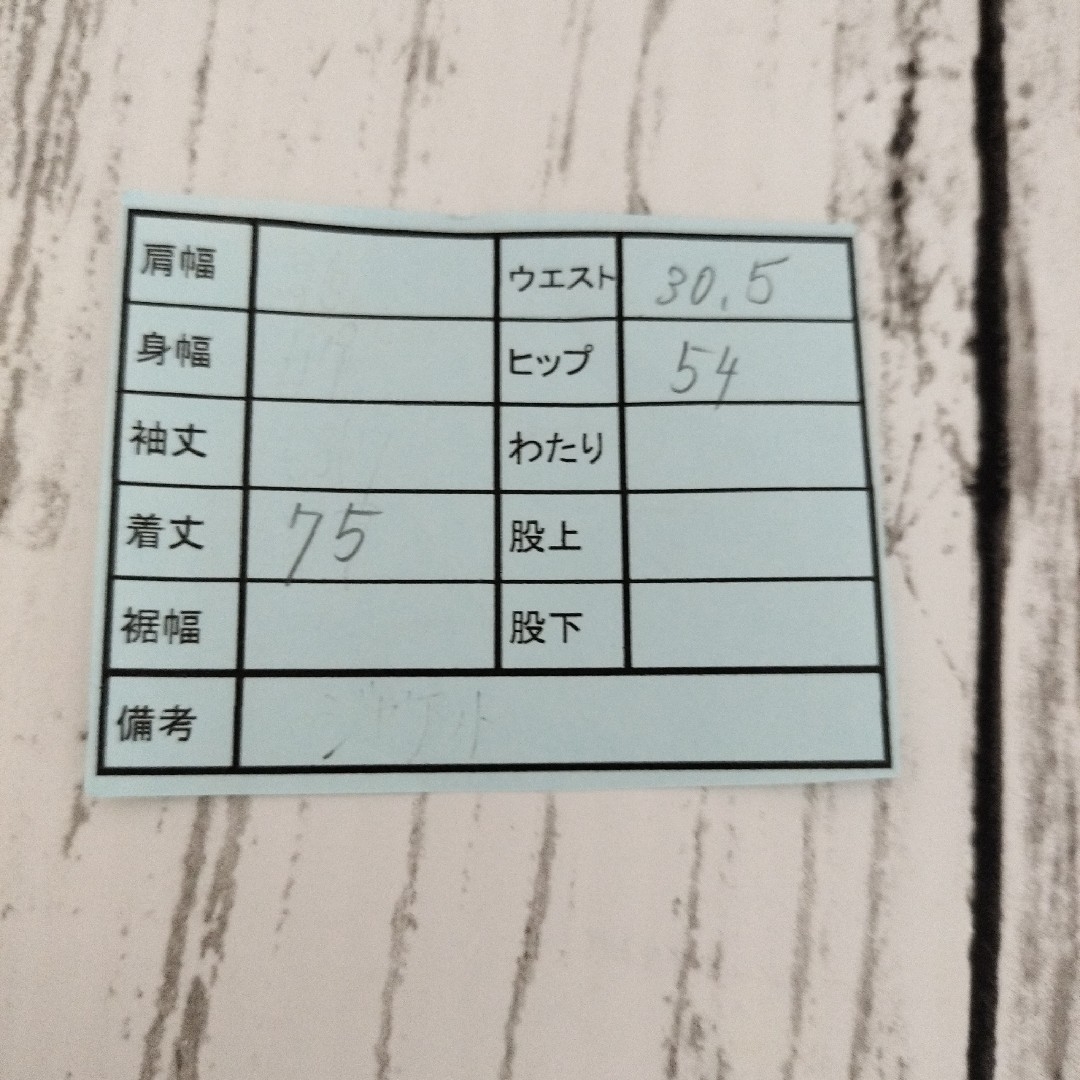 肩幅 ウエスト 30.5
身幅 ヒップ 54
袖丈 わたり
着丈 75 股上
裾幅 股下
備考